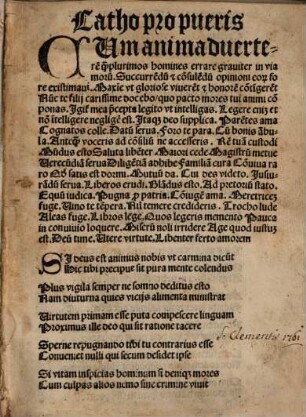 Catho pro pueris
Cum animaduerte-
rē q̄plurimos homines errare grauiter in via
morū. Succurrēdū & cōsulēdū opinioni eoꝝ fo
re existimaui. Maxīe vt gloriose viuerēt & honorē cōtigerēt
Nūc te fili carissime doceo quo pacto mores tui animi cō
ponas. Igit̄ mea p̄cepta legito vt intelligas. Legere enīꝫ et
nō intelligere negligē est. Itaqꝫ deo supplica. Parētes ama
Cognatos cole. Datū serua. Foro te para. Cū bonis ābu
la. Anteqꝫ voceris ad cōsiliū ne accesseris. Rē tuā custodi
Mūdus esto Saluta libēter Maiori cede Magistrū metue
Verecūdiā serua Diligētiā adhibe Familiā cura Cōuiua
raro Qđ satis est dormi. Mutuū da. Cui des videto. Iusiu-
rādū serua. Liberos erudi. Blādus esto. Ad pretoriū stato.
Equū iudica. Pugna ꝓ patria. Cōiugē ama. Meretrices
fuge. Vino te tēpera. Nil temere credideris. Trocho lude
Aleas fuge. Libros lege. Quos legeris memento Pauca
in conuiuio loquere. Miserū noli irridere Age quod iustuꝫ
est. Deū time. Vtere virtute. Libenter ferto amorem
SI deus est animus nobis vt carmina dicūt
Hic tibi precipue sit pura mente colendus
Plus vigila semper ne somno deditus esto
Nam diuturna quies vicijs alimenta ministrat
Virtutem primam esse puta compescere linguam
Proximus ille deo qui sit ratione tacere
Sperne repugnando tibi tu contrarius esse
Conueniet nulli qui secum desidet ipse
Si vitam inspicias hominum si deniqꝫ mores
Cum culpas alios nemo sine crimine viuit